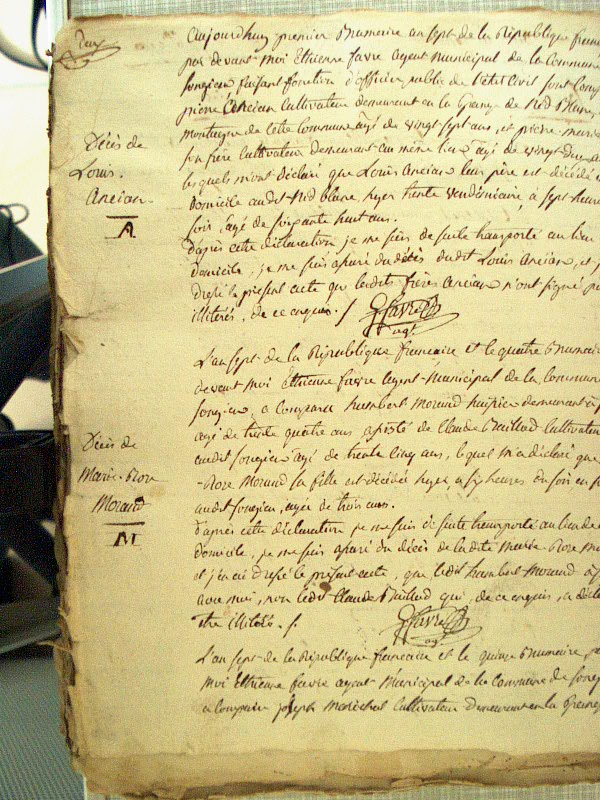 Deux
aujourdhuy premier brumaire an sept de la République
par devant moi Etienne favre agent municipal de la Commune
songieu faisant fonction d'officier public de l'état Civil sont
pierre Ancian Cultivateur demeurant en la Grange de
montagne de cette commune agé de vingt sept ans, et pierre
son frère Cultivateur demeurant au même lieu agé de vingt
lesquels m'ont déclaré que Louis Ancian leur père est décédé
domicile audit hyer trente vendémiaire, à sept heures
soir, agé de soixante huit ans.
Décès de
Louis
Ancian
A
d'après cette déclaration je me suis de suite transporté au lieu
domicile, je me suis assuré du décès dudit Louis Ancian, et
dressé le présent acte que lesdits frères Ancian n'ont signé
illitérés, de ce enquis. /
Favre
agt
L'an sept de la République francaise et le quatre brumaire
devant moi Etienne favre agent municipal de la Commune
songieu, a comparu humbert Morand demeurant
agé de trente quatre ans assisté de Claude Cultivateur
audit songieu agé de trente cinq ans, lequel m'a déclaré que
Rose Morand sa fille est décédée hyer a six heures du soir en
audit songieu, agée de trois ans.
Décès de
Marie-Rose
Morand
M
d'après cette déclaration je me suis de suite transporté au lieu de
domicile, je me suis assuré du décès de ladite Marie Rose
et j'en ai dressé le présent acte, que ledit humbert Morand a
avec moi, non ledit Claude qui, de ce enquis, a
être illitérés. /
Favre
agt
L'an sept de la République francaise et le quinze brumaire,
moi Etienne favre agent Municipal de la Commune de
a comparu joseph Maréchal Cultivateur demeurant en la Grange